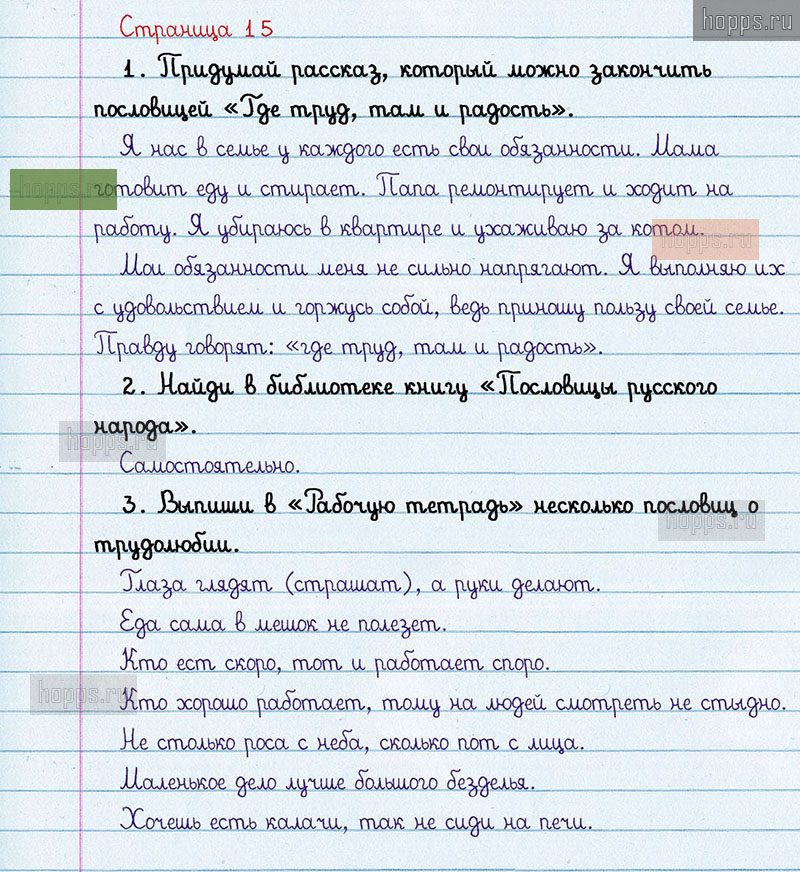 hopps.ru
Страница 15
1. Придумай рассказ, который можно закончить
пословицей «Где труд, там и радость».
Я нас в семье у каждого есть свои обязанности. Мама
готовит еду и стирает. Папа ремонтирует и ходит на
работу. Я убираюсь в квартире и ухаживаю за котом.
Мои обязанности меня не сильно напрягают. Я выполняю их
с удовольствием и горжусь собой, ведь приношу пользу своей семье.
Правду говорят: «где труд, там и радость».
2. Найди в библиотеке книгу «Пословицы русского
народа».
Самостоятельно.
3. Выпиши в «Рабочую тетрадь» несколько пословиц о
трудолюбии.
Глаза глядят (страшат), а руки делают.
Еда сама в мешок не полезет.
Кто ест скоро, тот и работает споро.
Кто хорошо работает, тому на людей смотреть не стыдно.
Не столько роса с неба, сколько пот с лица.
Маленькое дело лучше большого безделья.
Хочешь есть калачи, так не сиди на печи.
hopps.ru
hopps.ru
hopps.ru
hopps.ru
hopps.ru